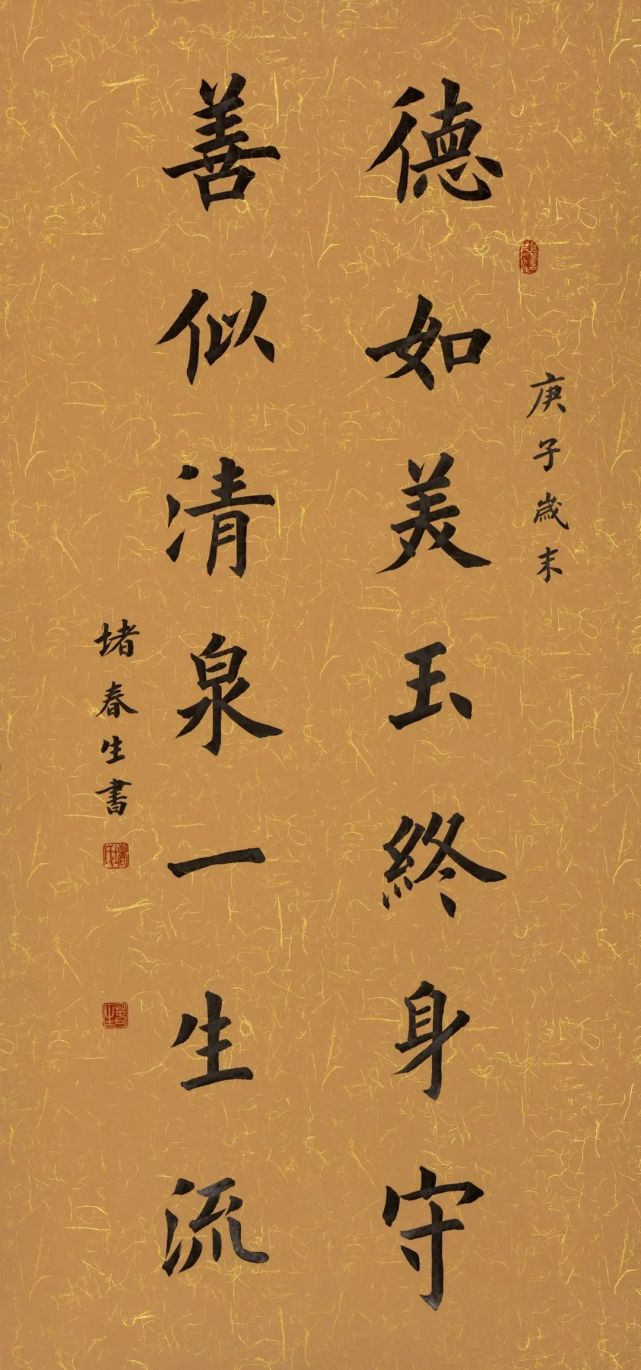 庚子歲末
德如美玉終身守
善似清泉一生流
堵春生書